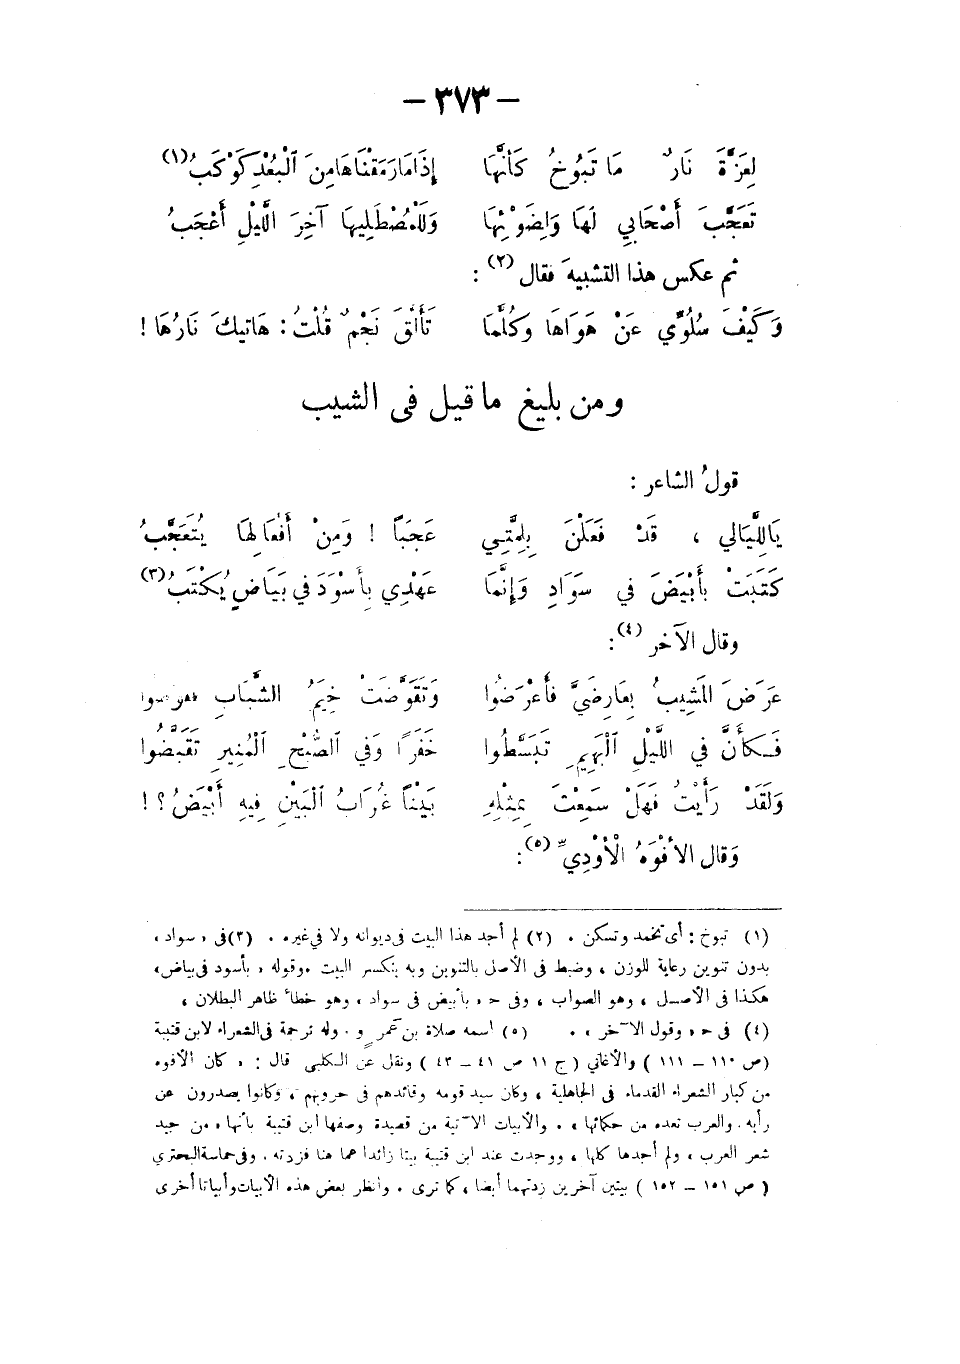 — ٣٧٣ —
لِعَزَّةَ نَارٌ مَا تَبُوخُ كَأنَّهَا إِذَا مَا رَمَقْنَاهَا مِنَ الْبُعْدِ كَوْكَبُ (١)
تَعَجَّبَ أَصْحَابِي لَهَا وَلِضَوْئِهَا وَلَلْمُصْطَلِيهَا آخِرَ اللَّيْلِ أَعْجَبُ
ثم عكس هذا التشبيهَ فقال (٢) :
وَكَيْفَ سُلُوِّي عَنْ هَوَاهَا وَكُلَّمَا تَأَلَّقَ نَجْمٌ قُلْتُ : هَاتِيكَ نَارُهَا !
ومن بليغ ما قيل فى الشيب
قولُ الشاعر :
يَا لِلَّيَالِي ، قَدْ فَعَلْنَ بِلِمَّتِي عَجَبًا ! وَمِنْ أَفْعَالِهَا يُتَعَجَّبُ
كَتَبَتْ بأَبْيَضَ فِي سَوَادِ وَإِنَّمَا عَهْدِي بِأَسْوَدَ فِي بَيَاضٍ يُكْتَبُ (٣)
وقال الآخر (٤) :
عَرَضَ الْمَشِيبُ بِعَارِضَيَّ فَأَعْرَضُوا وَتَقَوَّضَتْ خِيَمُ الشَّبَابِ فقوضوا
فَكأَنَّ فِي اللَّيْلِ الْبَهِيمِ تَبَسَّطُوا خَفَرًا وَفِي الصُّبْحِ الْمُنِيرِ تَقَبَّضُوا
وَلَقَدْ رَأَيْتُ فَهَلْ سَمِعْتَ بِمِثْلِهِ بَيْنًا غُرَابُ الْبَيْنِ فِيهِ أَبْيَضُ ؟ !
وَقال الأفْوَهُ الْأَوْدِيُّ (٥) :
(١) تبوخ : أى تخمد وتسكن . (٢) لم أجد هذا البيت فى ديوانه ولا فى غيره . (٣) فى « سواد »
بدون تنوين رعاية للوزن ، وضبط فى الأصل بالتنوين وبه ينكسر البيت . وقوله « بأسود فى بياض »
هكذا فى الأصل ، وهو الصواب ، وفى ح « بأبيض فى سواد » وهو خطأ ظاهر البطلان .
(٤) فى ح « وقول الآخر » . (٥) اسمه صلاة بن عمرو . وله ترجمة فى الشعراء لابن قتيبة
(ص ١١٠ — ١١١ ) والأغاني ( ج ١١ ص ٤١ — ٤٣ ) ونقل عن الكلبى قال : « كان الأفوه
من كبار الشعراء القدماء فى الجاهلية ، وكان سيد قومه وقائدهم فى حروبهم ، وكانوا يصدرون عن
رأيه . والعرب تعده من حكمائها » . والأبيات الآتية من قصيدة وصفها ابن قتيبة بأنها « من جيد
شعر العرب » ولم أجدها كلها ، ووجدت عند ابن قتيبة بيتا زائدا عما هنا فزدته . وفى حماسة البحتري
( ص ١٥١ — ١٥٢ ) بيتين آخرين زدتهما أيضا ، كما ترى . وانظر بعض هذه الأبيات وأبياتا أخرى